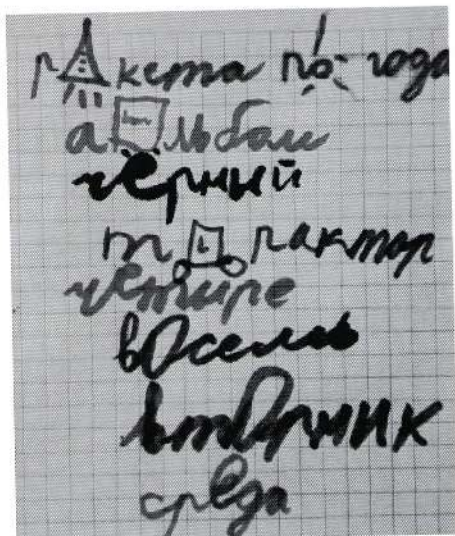 ракета погода
альбом
чёрный
трактор
четыре
восемь
вторник
среда